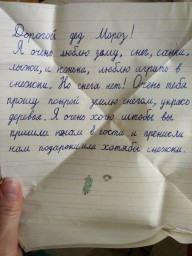 Дорогой дед Мороз!
Я очень люблю зиму, снег, санки,
лыжи, и коньки, люблю играть в
снежки. Но снега нет! Очень тебя
прошу покрой землю снегом, укрась
деревья. Я очень хочу чтобы вы
пришли к нам в гости и принесли
нам подарки или хотябы снежки.